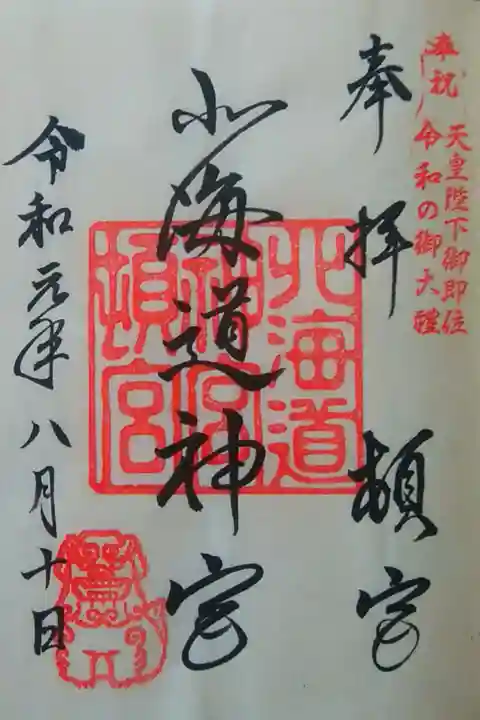 奉祝
天皇陛下御即位
令和の御大禮
奉拝
頓宮
北海道神宮
北海道
神宮
頓宮
令和元年八月十日